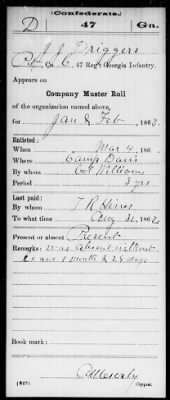 (Confederate.)
D 47 Ga.
J J Driggers
Pvt, Co. C, 47 Reg't Georgia Infantry.
Appears on
Company Muster Roll
of the organization named above,
for Jan & Feb, 1863.
Enlisted:
When Mar 4, 186
Where Camp Davis
By whom Col Williams
Period 3 yrs
Last paid:
By whom T R Hines
To what time Aug 31, 1862
Present or absent Present
Remarks: was absent without
leave 1 month & 29 days
Book mark:
(642)
Copyist.